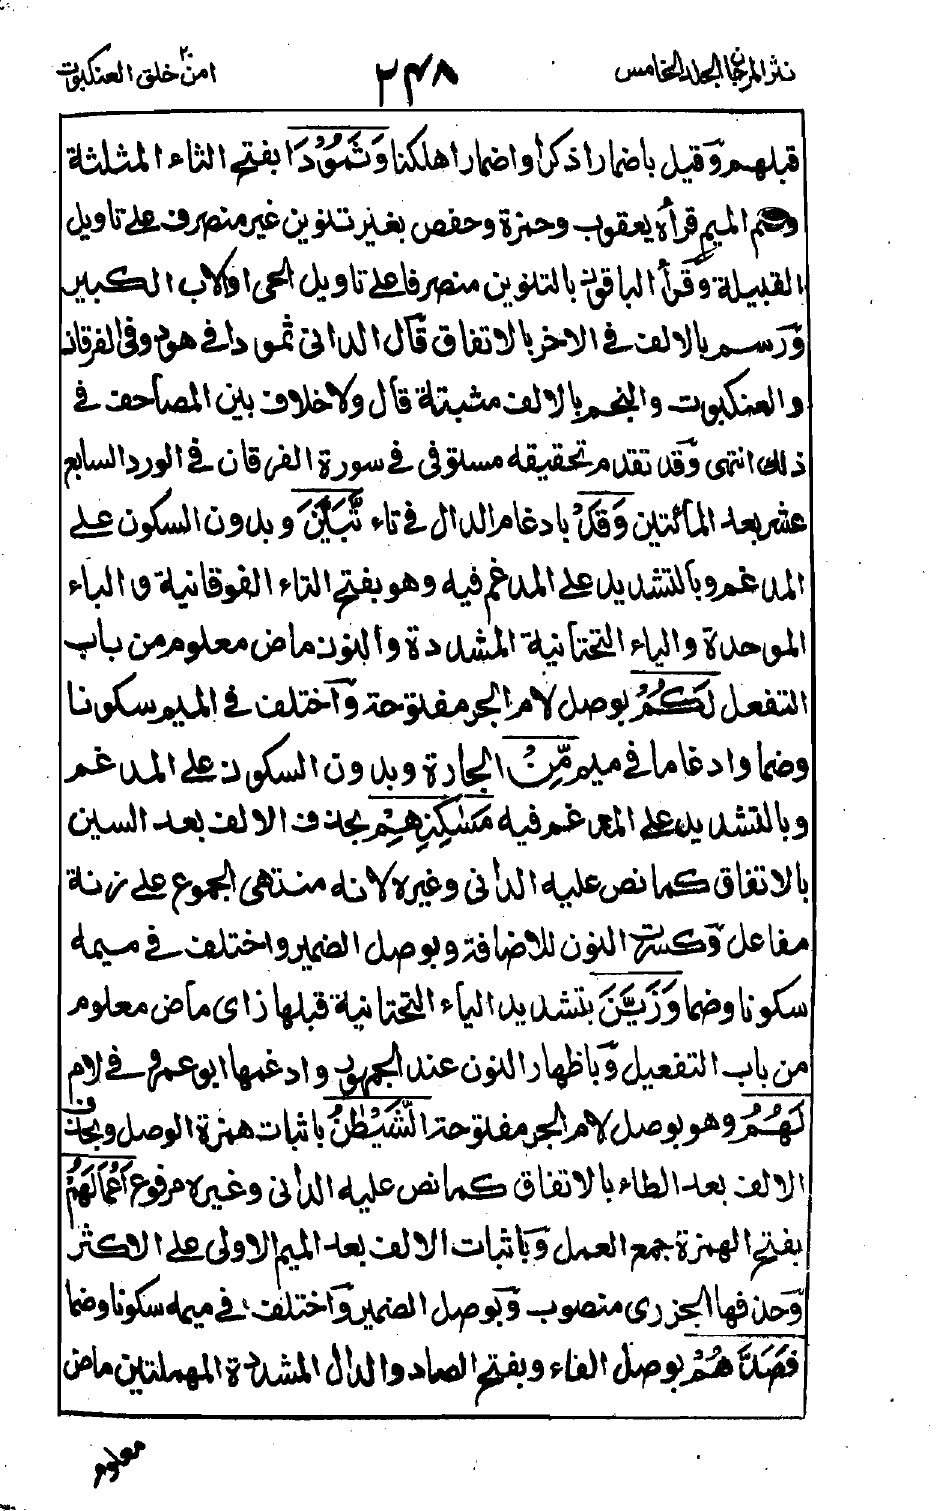 نثر المرجان الجلد الخامس
٢٤٨
امن خلق ٢٠ العنكبوت
قبلهم وقيل باضمار اذكر أو اضمار اهلكنا وَثَمُوْدَا بفتح الثاء المثلثة
وضم الميم قرأه يعقوب وحمزة وحفص بغير تنوين غير منصرف على تاويل
القبيلة وقرأ الباقون بالتنوين منصرفا على تاويل الحى او الاب الكبير
ورسم بالالف فى الاخر بالاتفاق قال الدانى ثمودا فى هود وفى الفرقان
والعنكبوت والنجم بالالف مثبتة قال ولا خلاف بين المصاحف فى
ذلك انتهى وقد تقدم تحقيقه مستوفى فى سورة الفرقان فى الورد السابع
عشر بعد المائتين وَقَدْ بادغام الدال فى تاء تَّبَيَّنَ وبدون السكون على
المدغم وبالتشديد على المدغم فيه وهو بفتح التاء الفوقانية و الباء
الموحدة والياء التحتانية المشددة والنون ماض معلوم من باب
التفعل لَكُمْ بوصل لام الجر مفتوحة واختلف فى الميم سكونا
وضما وادغاما فى ميم مِّنْ الجارة وبدون السكون على المدغم
وبالتشديد على المدغم فيه مَسٰكِنِهِمْ بحذف الالف بعد السين
بالاتفاق كما نص عليه الدانى وغيره لانه منتهى الجموع على زنة
مفاعل وكسرت النون للاضافة وبوصل الضمير واختلف فى ميمه
سكونا وضما وَزَيَّنَ بتشديد الياء التحتانية قبلها زاى ماض معلوم
من باب التفعيل وباظهار النون عند الجمهور وادغمها ابو عمرو فى لام
لَهُمْ وهو بوصل لام الجر مفتوحة الشَّيْطٰنُ باثبات همزة الوصل وبحذف
الالف بعد الطاء بالاتفاق كما نص عليه الدانى وغيره مرفوع اَعْمَالَهُمْ
بفتح الهمزة جمع العمل وباثبات الالف بعد الميم الاولى على الاكثر
وحذفها الجزرى منصوب وبوصل الضمير واختلف فى ميمه سكونا وضما
فَصَدَّهُمْ بوصل الفاء وبفتح الصاد والدال المشددة المهملتين ماض
معلوم